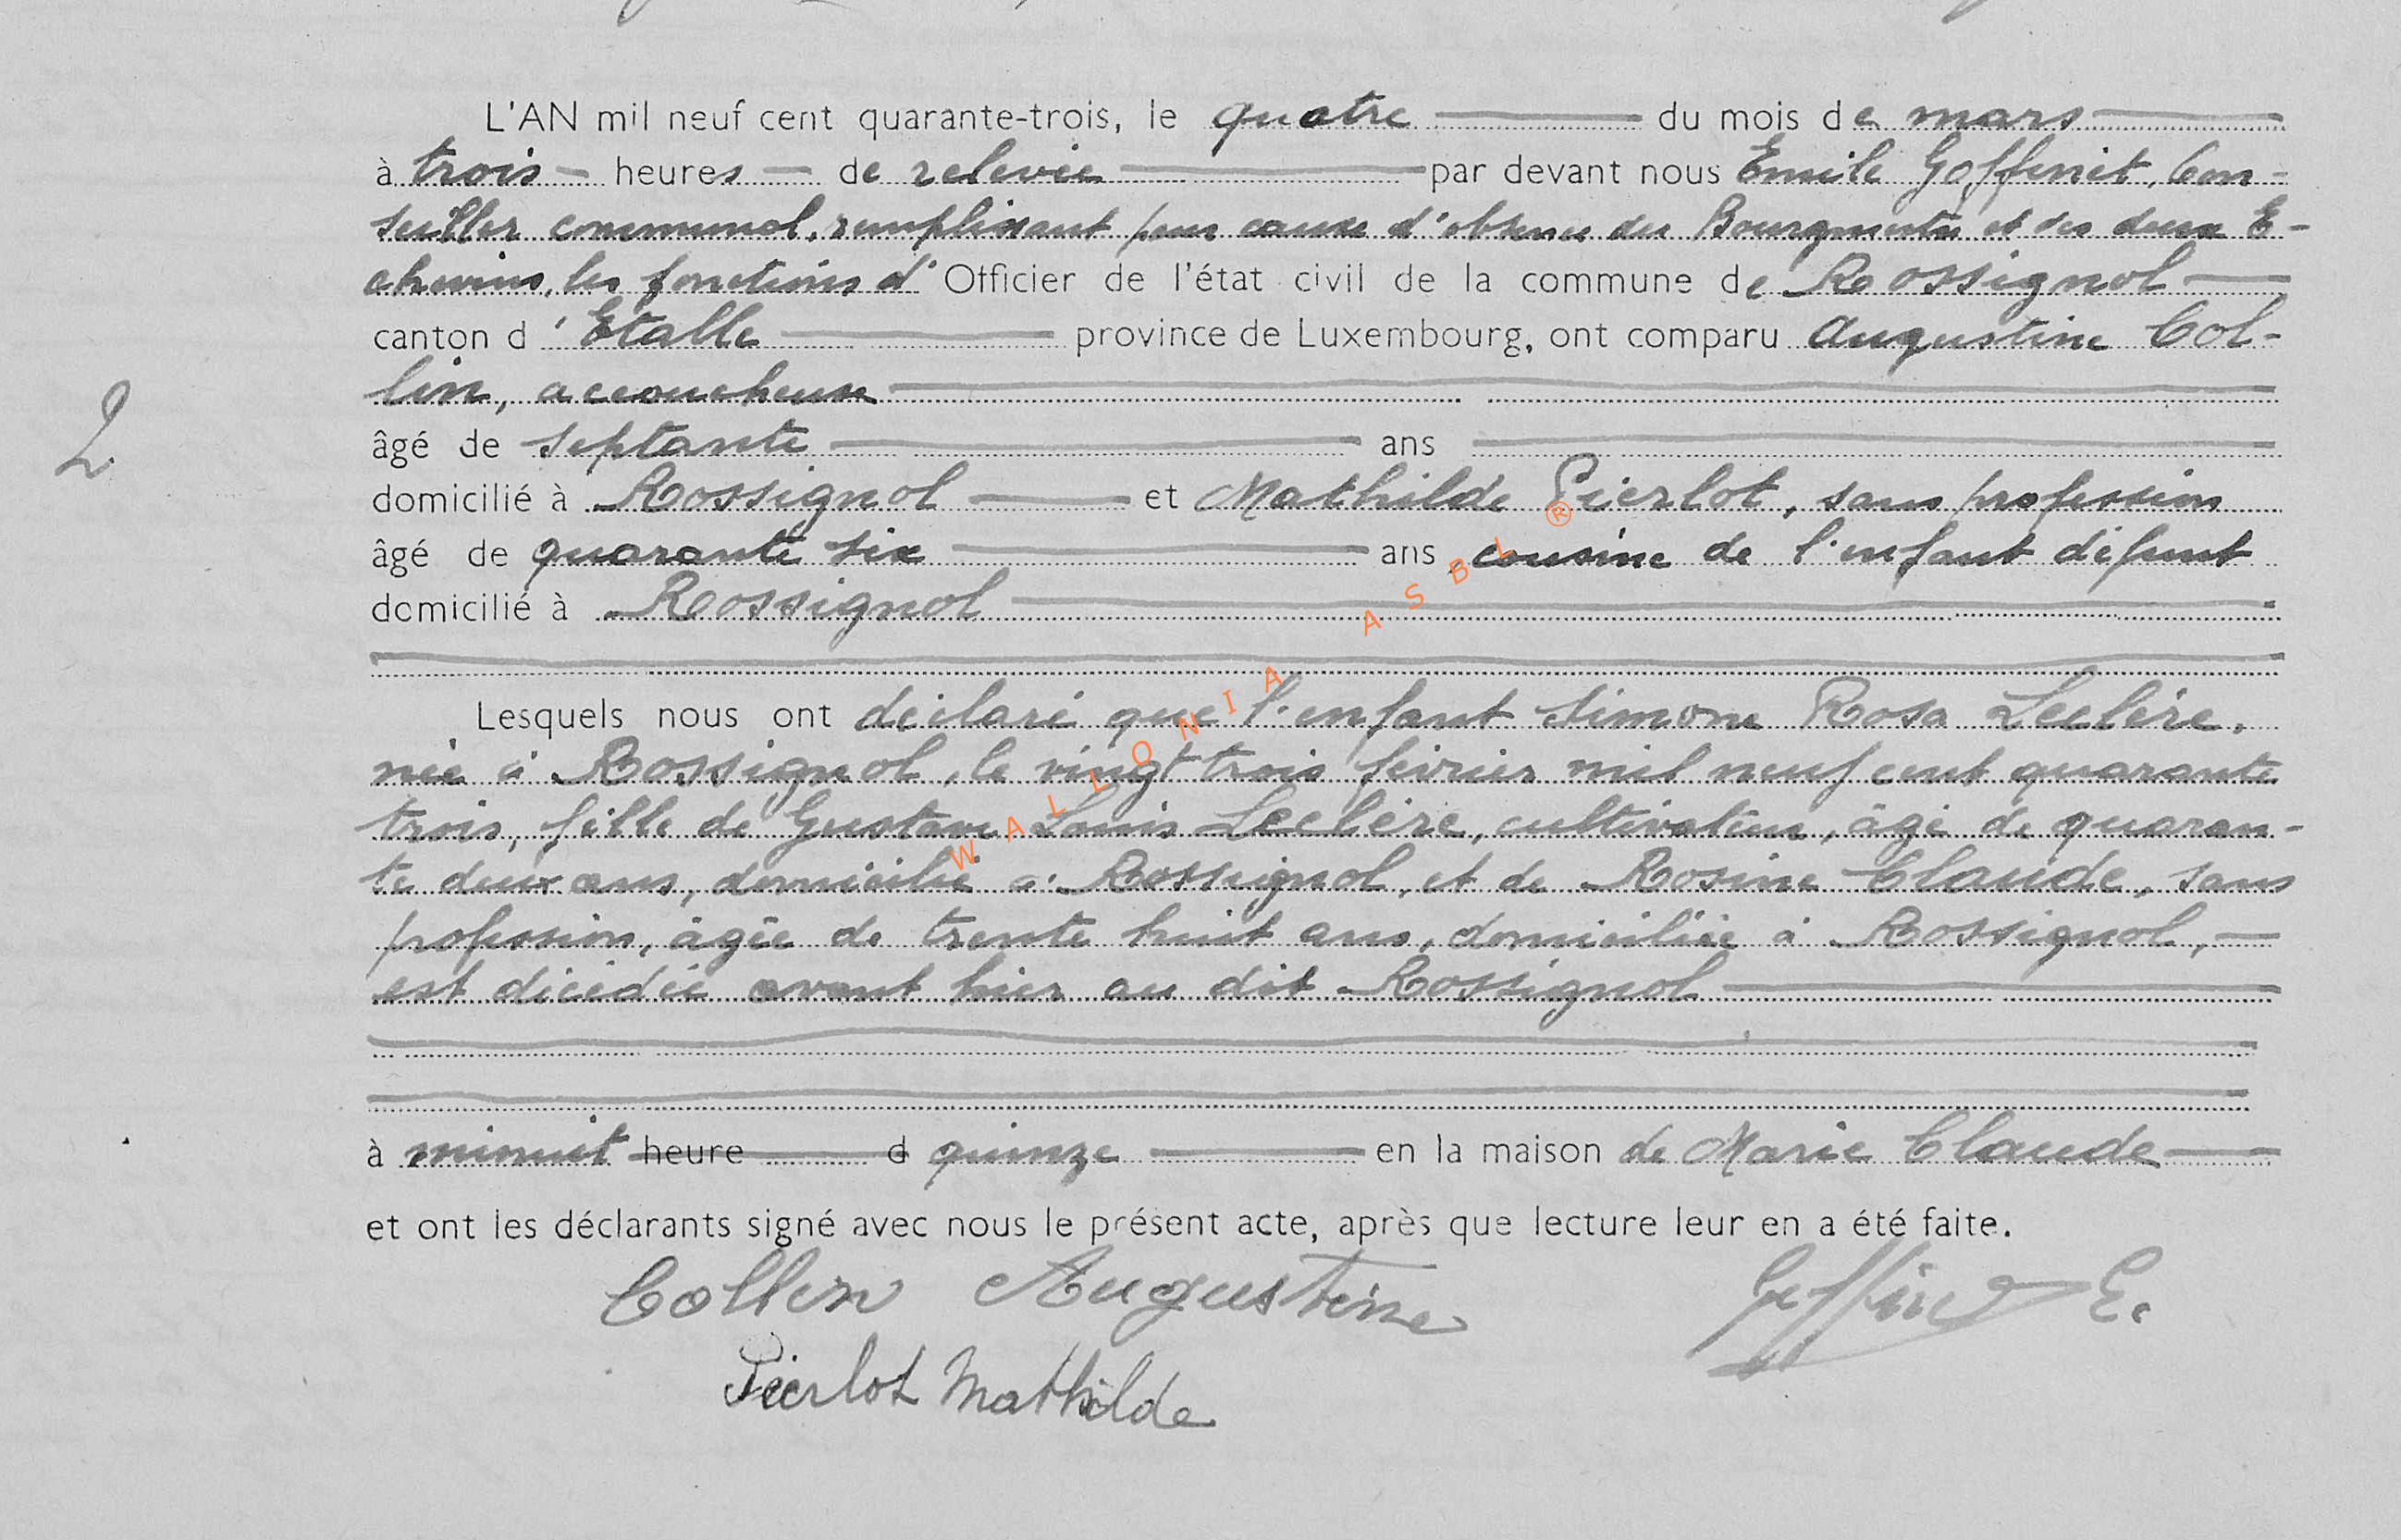 L'AN mil neuf cent quarante-trois, le quatre du mois de mars
à trois heures de relevée par devant nous Emile Goffinet, Con-
seiller communal, remplissant pour cause d'absence du Bourgmestre et des deux E-
chevins, les fonctions d'Officier de l'état civil de la commune de Rossignol
canton d'Etalle province de Luxembourg, ont comparu Augustine Col-
lin, accoucheuse
âgé de septante ans
2
domicilié à Rossignol et Mathilde Pierlot, sans profession
âgé de quarante six ans, cousine de l'enfant défunt
domicilié à Rossignol
Lesquels nous ont déclaré que l'enfant Simone Rosa Leclère,
née à Rossignol, le vingt trois février mil neuf cent quarante
trois, fille de Gustave Louis Leclère, cultivateur, âgé de quaran-
te deux ans, domicilié à Rossignol, et de Rosine Claude, sans
profession, âgée de trente huit ans, domiciliée à Rossignol,
est décédée avant hier au dit Rossignol
à minuit heure d quinze en la maison de Marie Claude
et ont les déclarants signé avec nous le présent acte, après que lecture leur en a été faite.
Collin Augustine Goffinet E.
Pierlot Mathilde
WALLONIA ASBL ®